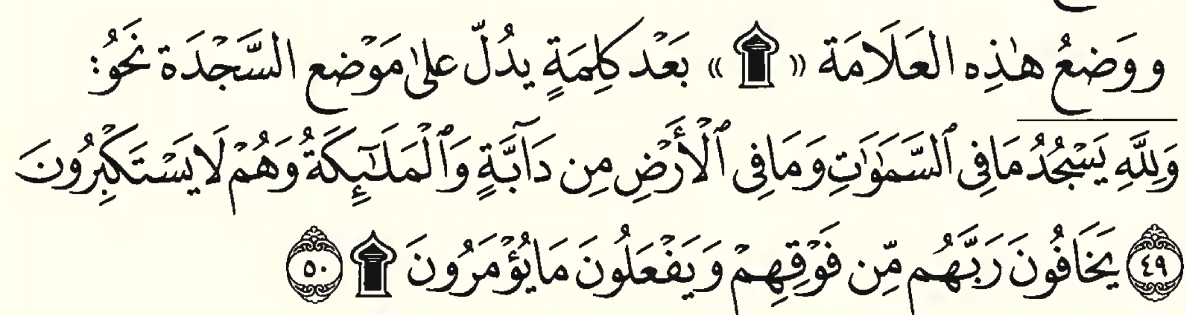 ووَضعُ هٰذِه العَلَامَة « ۩ » بَعْد كَلِمَةٍ يدُلّ علىٰ مَوْضع السَّجْدَة نَحْو:
وَلِلَّهِ يَسْجُدُ مَا فِى ٱلسَّمَٰوَٰتِ وَمَا فِى ٱلْأَرْضِ مِن دَآبَّةٍ وَٱلْمَلَٰٓئِكَةُ وَهُمْ لَا يَسْتَكْبِرُونَ
۝٤٩ يَخَافُونَ رَبَّهُم مِّن فَوْقِهِمْ وَيَفْعَلُونَ مَا يُؤْمَرُونَ ۩ ۝٥٠